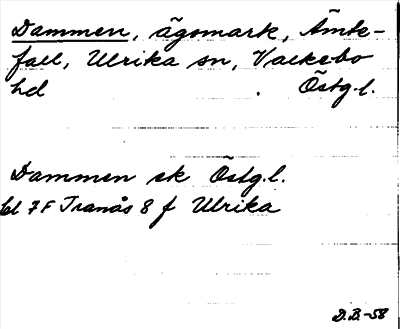 Dammen, ägomark, Ämte-
fall, Ulrika sn, Valkebo
hd Östg.l.
Dammen sk Östg.l.
bl 7 F Tranås 8 f Ulrika
D.B.-58